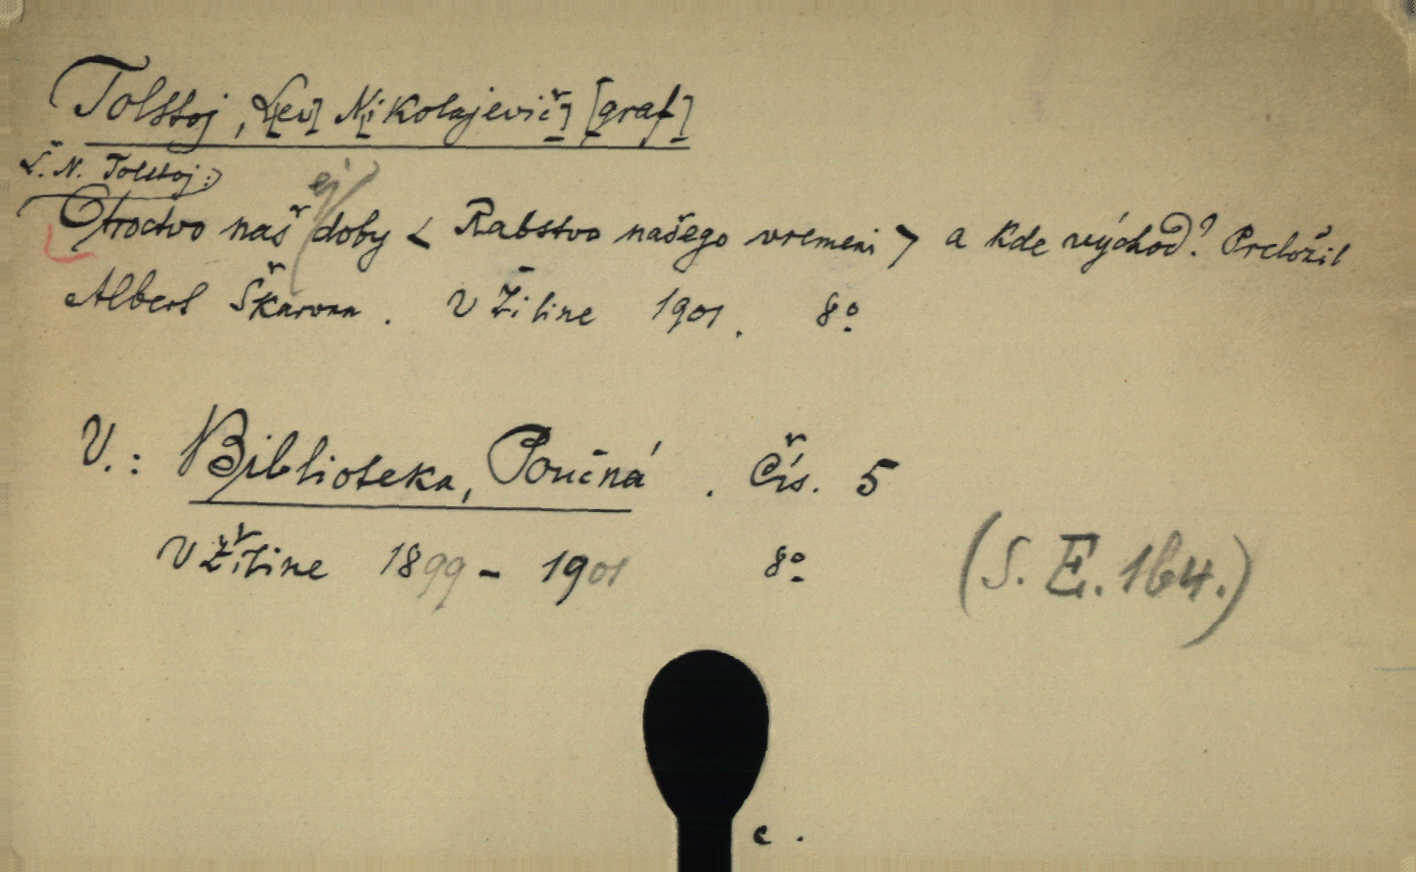 Tolstoj, L[ev] N[ikolajevič] [graf]
L. N. Tolstoj:
Otroctvo našej doby < Rabstvo našego vremeni > a kde východ? Preložil
Albert Škarvan. V Žiline 1901. 8°
V.: Biblioteka, Poučná. Čís. 5
V Žiline 1899 - 1901 8°
(S. E. 164.)
c.